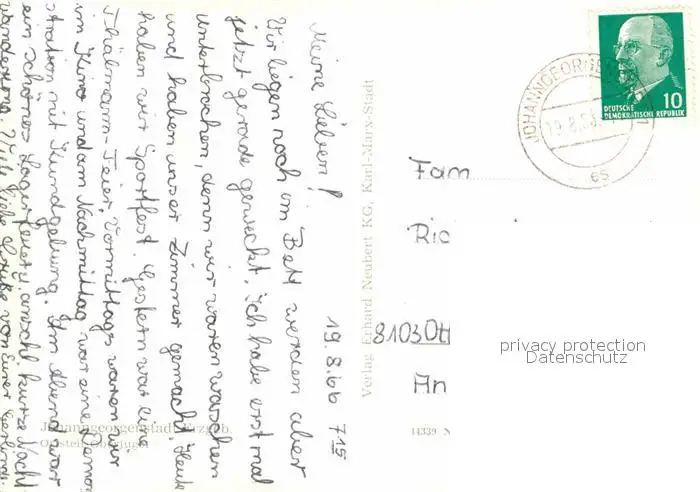 19.8.66 7 15
Meine Lieben!
Wir liegen noch im Bett werden aber
jetzt gerade geweckt. Ich habe erst mal
unterbrochen, denn wir waren waschen
und haben unser Zimmer gemacht. Heute
haben wir Sportfest. Gestern war eine
Thälmann-Feier. Vormittags waren wir
im Kino und am Nachmittag war eine Demon
stration mit Kundgebung. Am Abend war
ein schönes Lagerfeuer, anschl. kurze Nacht
wanderung. Viele liebe Grüße von Eurer Gerlinde
Johanngeorgenstadt Erzgeb.
Ortsteil
Verlag Erhard Neubert KG, Karl-Marx-Stadt
14339 N
JOHANNGEORGEN
19.8.66
DEUTSCHE
DEMOKRATISCHE REPUBLIK
10
Fam
Ric
8103 Ott
An
privacy protection
Datenschutz